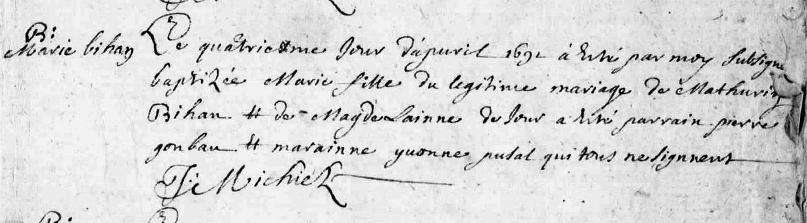 B:
Marie bihan
Le quatriesme Jour dapuril 1691 á esté par moy subsigne
baptizée Marie fille du legitime mariage de Mathurin
Bihan et de Magdelainne de Jour a esté parrain pierre
gonbau et marainne yuonne pusat qui tous ne signnent